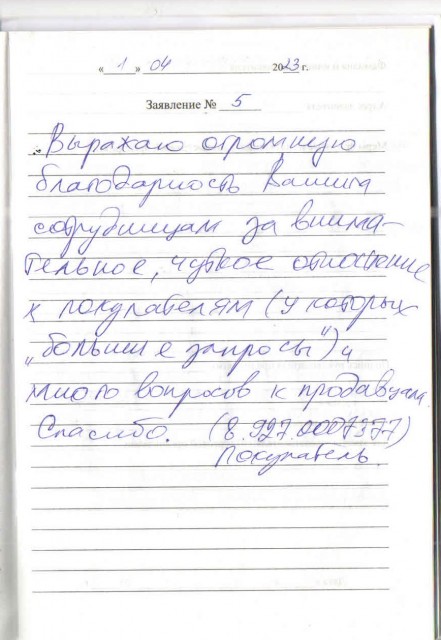 « 1 » 04 2023 г.
Заявление № 5
Выражаю огромную
благодарность Вашим
сотрудницам за внима-
тельное, чуткое отношение
к покупателям (у которых
"большие запросы") и
много вопросов к продавцам.
Спасибо. (8.927.0007377)
Покупатель.